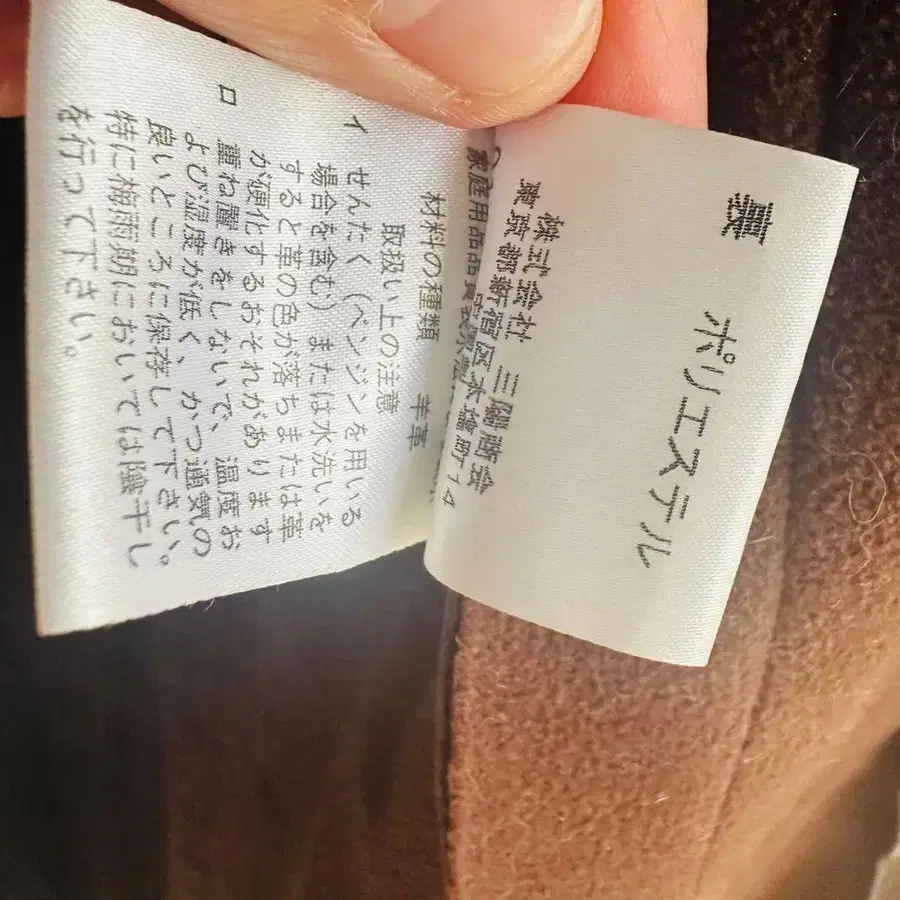 裏
ポリエステル
株式会社 三陽商会
東京都新宿区本塩町14
家庭用品品質表示法
材料の種類 羊革
取扱い上の注意
イ せんたく(ベンジンを用いる
場合を含む)または水洗いを
すると革の色が落ちまたは革
が硬化するおそれがあります
ロ 重ね置きをしないで、温度お
よび湿度が低く、かつ通気の
良いところに保存して下さい。
特に梅雨期においては陰干し
を行って下さい。